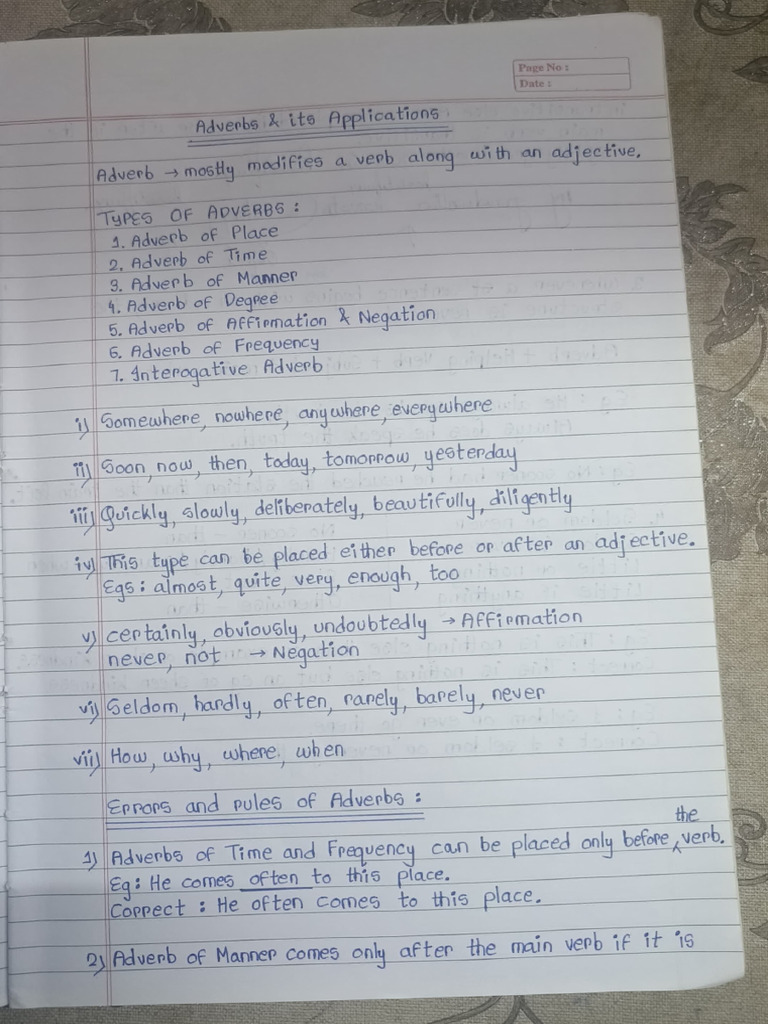 Page No :
Date :
Adverbs & its Applications
Adverb → mostly modifies a verb along with an adjective.
TYPES OF ADVERBS :
1. Adverb of Place
2. Adverb of Time
3. Adverb of Manner
4. Adverb of Degree
5. Adverb of Affirmation & Negation
6. Adverb of Frequency
7. Interogative Adverb
i) Somewhere, nowhere, anywhere, everywhere
ii) Soon, now, then, today, tomorrow, yesterday
iii) Quickly, slowly, deliberately, beautifully, diligently
iv) This type can be placed either before or after an adjective.
Egs : almost, quite, very, enough, too
v) certainly, obviously, undoubtedly → Affirmation
never, not → Negation
vi) Seldom, hardly, often, rarely, barely, never
vii) How, why, where, when
Errors and rules of Adverbs :
1) Adverbs of Time and Frequency can be placed only before the verb.
Eg : He comes often to this place.
Correct : He often comes to this place.
2) Adverb of Manner comes only after the main verb if it is